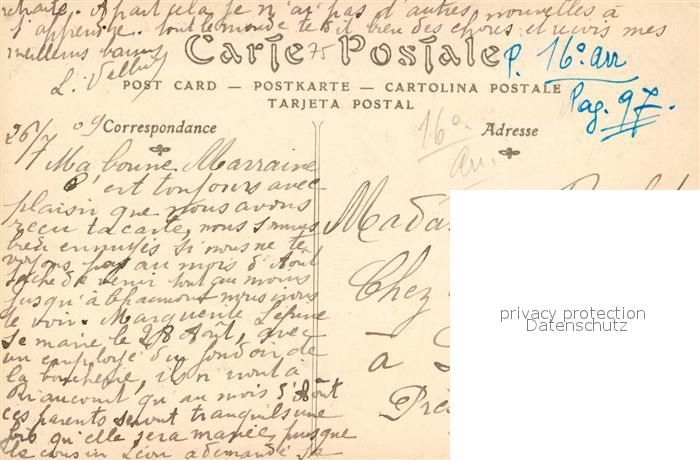 retraite. A part cela je n'ai pas d'autres nouvelles à
t'apprendre. tout le monde te dit bien des choses et reçois mes
meilleurs baisers
L.
Carte Postale
75
P. 16º arr
Pag. 97.
POST CARD — POSTKARTE — CARTOLINA POSTALE
TARJETA POSTAL
16º
arr.
26/7 09
Correspondance
Adresse
Ma bonne Marraine
C'est toujours avec
plaisir que nous avons
reçu ta carte, nous sommes
bien ennuyés si nous ne te
voyons pas au mois d'Août
tâche de venir tout au moins
jusqu'à Chaumont nous irons
te voir. Marguerite
se marie le 28 Août, avec
un employé du
la boucherie, ils iront à
qu'au mois d'Août
ces parents seront tranquils une
fois qu'elle sera mariée, puisque
le cousin Léon a demandé sa
Mada
Chez
à
Prè
privacy protection
Datenschutz